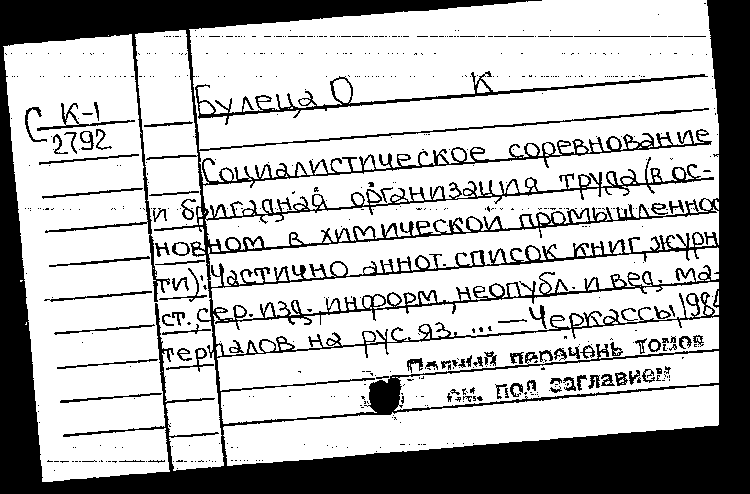 С К-1
2792
Булеца, О К
Социалистическое соревнование
и бригадная организация труда (в ос-
новном в химической промышленнос
ти): Частично аннот. список книг, журн
ст., сер. изд., информ., неопубл. и вед. ма-
териалов на рус. яз. ... — Черкассы, 198
Полный перечень томов
см. под заглавием